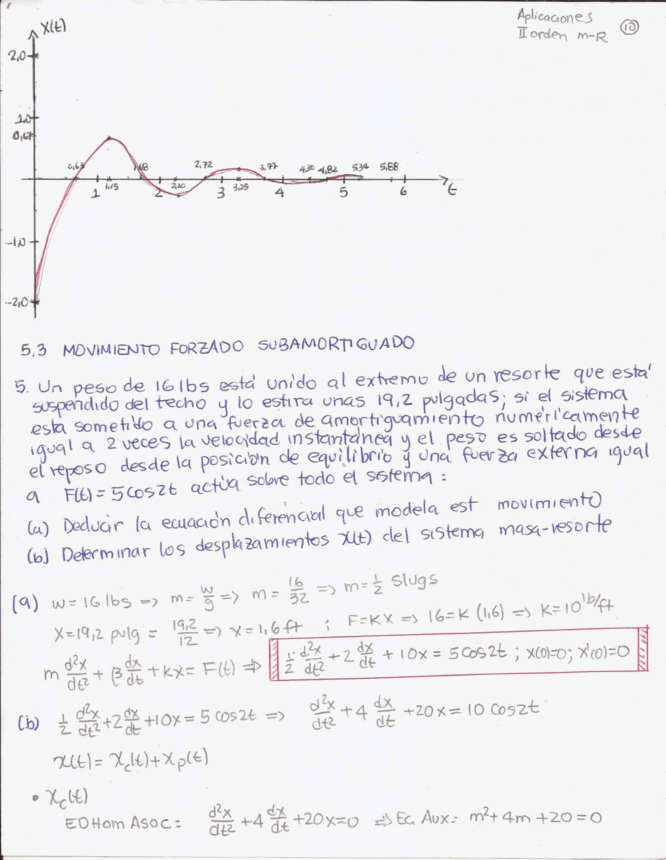 Aplicaciones
II orden m-R (10)
X(t)
2,0
1,0
0,67
0,63 1,68 2,72 3,77 4,30 4,82 5,34 5,88
1 1,15 2 2,20 3 3,25 4 5 6 t
-1,0
-2,0
5.3 MOVIMIENTO FORZADO SUBAMORTIGUADO
5. Un peso de 16 lbs está unido al extremo de un resorte que está
suspendido del techo y lo estira unas 19,2 pulgadas; si el sistema
esta sometido a una fuerza de amortiguamiento numéricamente
igual a 2 veces la velocidad instantánea y el peso es soltado desde
el reposo desde la posición de equilibrio y una fuerza externa igual
a F(t)=5cos2t actúa sobre todo el sistema:
(a) Deducir la ecuación diferencial que modela est movimiento
(b) Determinar los desplazamientos x(t) del sistema masa-resorte
(a) w=16 lbs => m= w/g => m= 16/32 => m= 1/2 slugs
X=19,2 pulg = 19,2/12 => x=1,6 ft ; F=KX => 16=K(1,6) => K=10 lb/ft
m d²x/dt² + β dx/dt + kx = F(t) => 1/2 d²x/dt² + 2 dx/dt + 10x = 5cos2t ; x(0)=0; x'(0)=0
(b) 1/2 d²x/dt² + 2 dx/dt + 10x = 5 cos2t => d²x/dt² + 4 dx/dt + 20x = 10 cos2t
x(t) = Xc(t) + Xp(t)
• Xc(t)
ED Hom Asoc: d²x/dt² + 4 dx/dt + 20x=0 => Ec. Aux: m²+4m+20=0